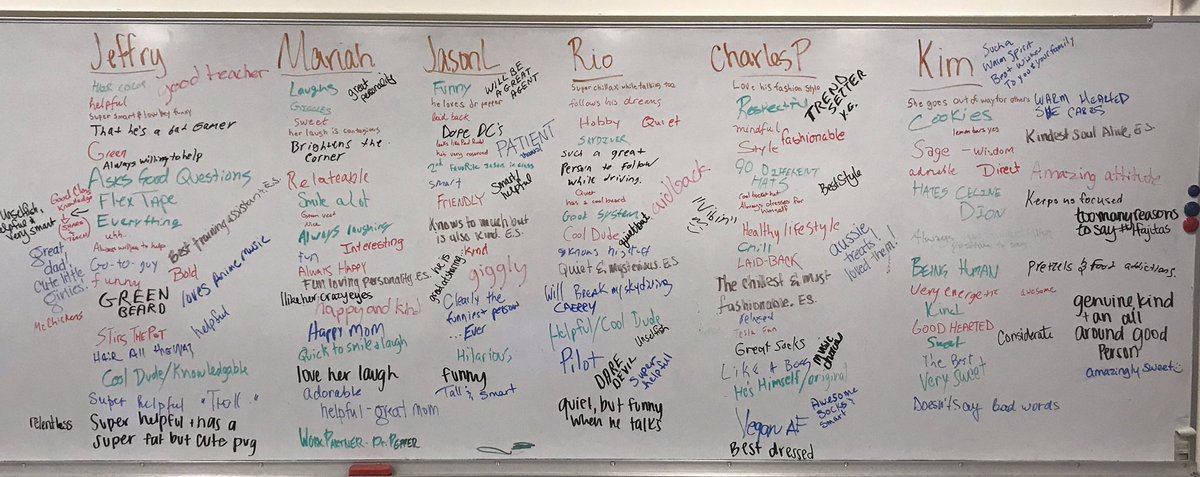 Jeffry
Hair color
good teacher
helpful
Super smart & low key funny
That he's a dad Gamer
Green
Always willing to help
Asks Good Questions
Good Class Knowledge
Flex Tape
Everything
unselfish
helpful &
Very smart
uhh..
Always willing to help
Best training assistant. E.S.
Go-to-guy
Great dad!
Cute little girlies.
funny
Bold
loves Anime music
GREEN
BEARD
Mc Chickens
STIRS THE POT
helpful
HAIR All THE WAY
Cool Dude/Knowledgable
Super helpful "Troll"
relentless
Super helpful + has a
super fat but cute pug
Mariah
Laughs
great personality
GIGGLES
Sweet
her laugh is contagious
Brightens the
corner
Relateable
Smile alot
Always laughing
fun
Interesting
Always Happy
Fun loving personality. E.S.
I like her crazy eyes
Happy and kind
Happy mom
Quick to smile & laugh
love her laugh
adorable
helpful - great mom
WORK PARTNER - Dr. PEPPER
Jason L
Funny
WILL BE
A GREAT
AGENT
he loves dr pepper
laid back
Dope DC's
looks like Paul Rudd
PATIENT
his very reserved
2nd FAVORITE JASON in class
smart
Smart
helpful
FRIENDLY
Knows to much but
is also kind. E.S.
Kind
he is
good at sharing.
giggly
Clearly the
funniest person
...Ever
Hilarious,
funny
Tall & Smart
Rio
Super chillax while talking too
follows his dreams
Hobby Quiet
SKYDIVER
Such a great
Person to follow
while driving.
Quiet
has a cool beard
quiet/beat
Goat System
Cool Dude
laid back
knows his stuff
Quiet & Mysterious. E.S.
Will Break my skydiving
CHERRY
Helpful/Cool Dude
Unselfish
Pilot
DARE
DEVIL
Super
helpful
quiet, but funny
when he talks
Charles P
Love his fashion style
Respectful
TREND
SETTER
Y.G.
mindful
Style
fashionable
90 DIFFERENT
HATS
Best Style
Always dresses for
himself
"Vibin"
Healthy lifestyle
Chill
aussie
treats!
loved them!
LAID-BACK
The chillest & most
fashionable. E.S.
Relaxed
Tesla Fan
Great Socks
music
choices
Like A Boss
He's Himself/original
Awesome
Socks &
Smart
Vegan AF
Best dressed
Kim
Such a
Warm Spirit
Best wishes
To you & your family
She goes out of way for others
WARM HEARTED
SHE CARES
Cookies
lemon bars yes
Kindest Soul Alive, E.S.
Sage - Wisdom
adorable
Direct
Amazing attitude
HATES CELINE
DION
Keeps us focused
too many reasons
to say #fajitas
BEING HUMAN
Pretzels & food addictions.
Very energetic
awesome
Kind
genuine, kind
+ an all
around good
Person
GOOD HEARTED
Considerate
Sweet
The Best
Very sweet
amazingly sweet :)
Doesn't say bad words